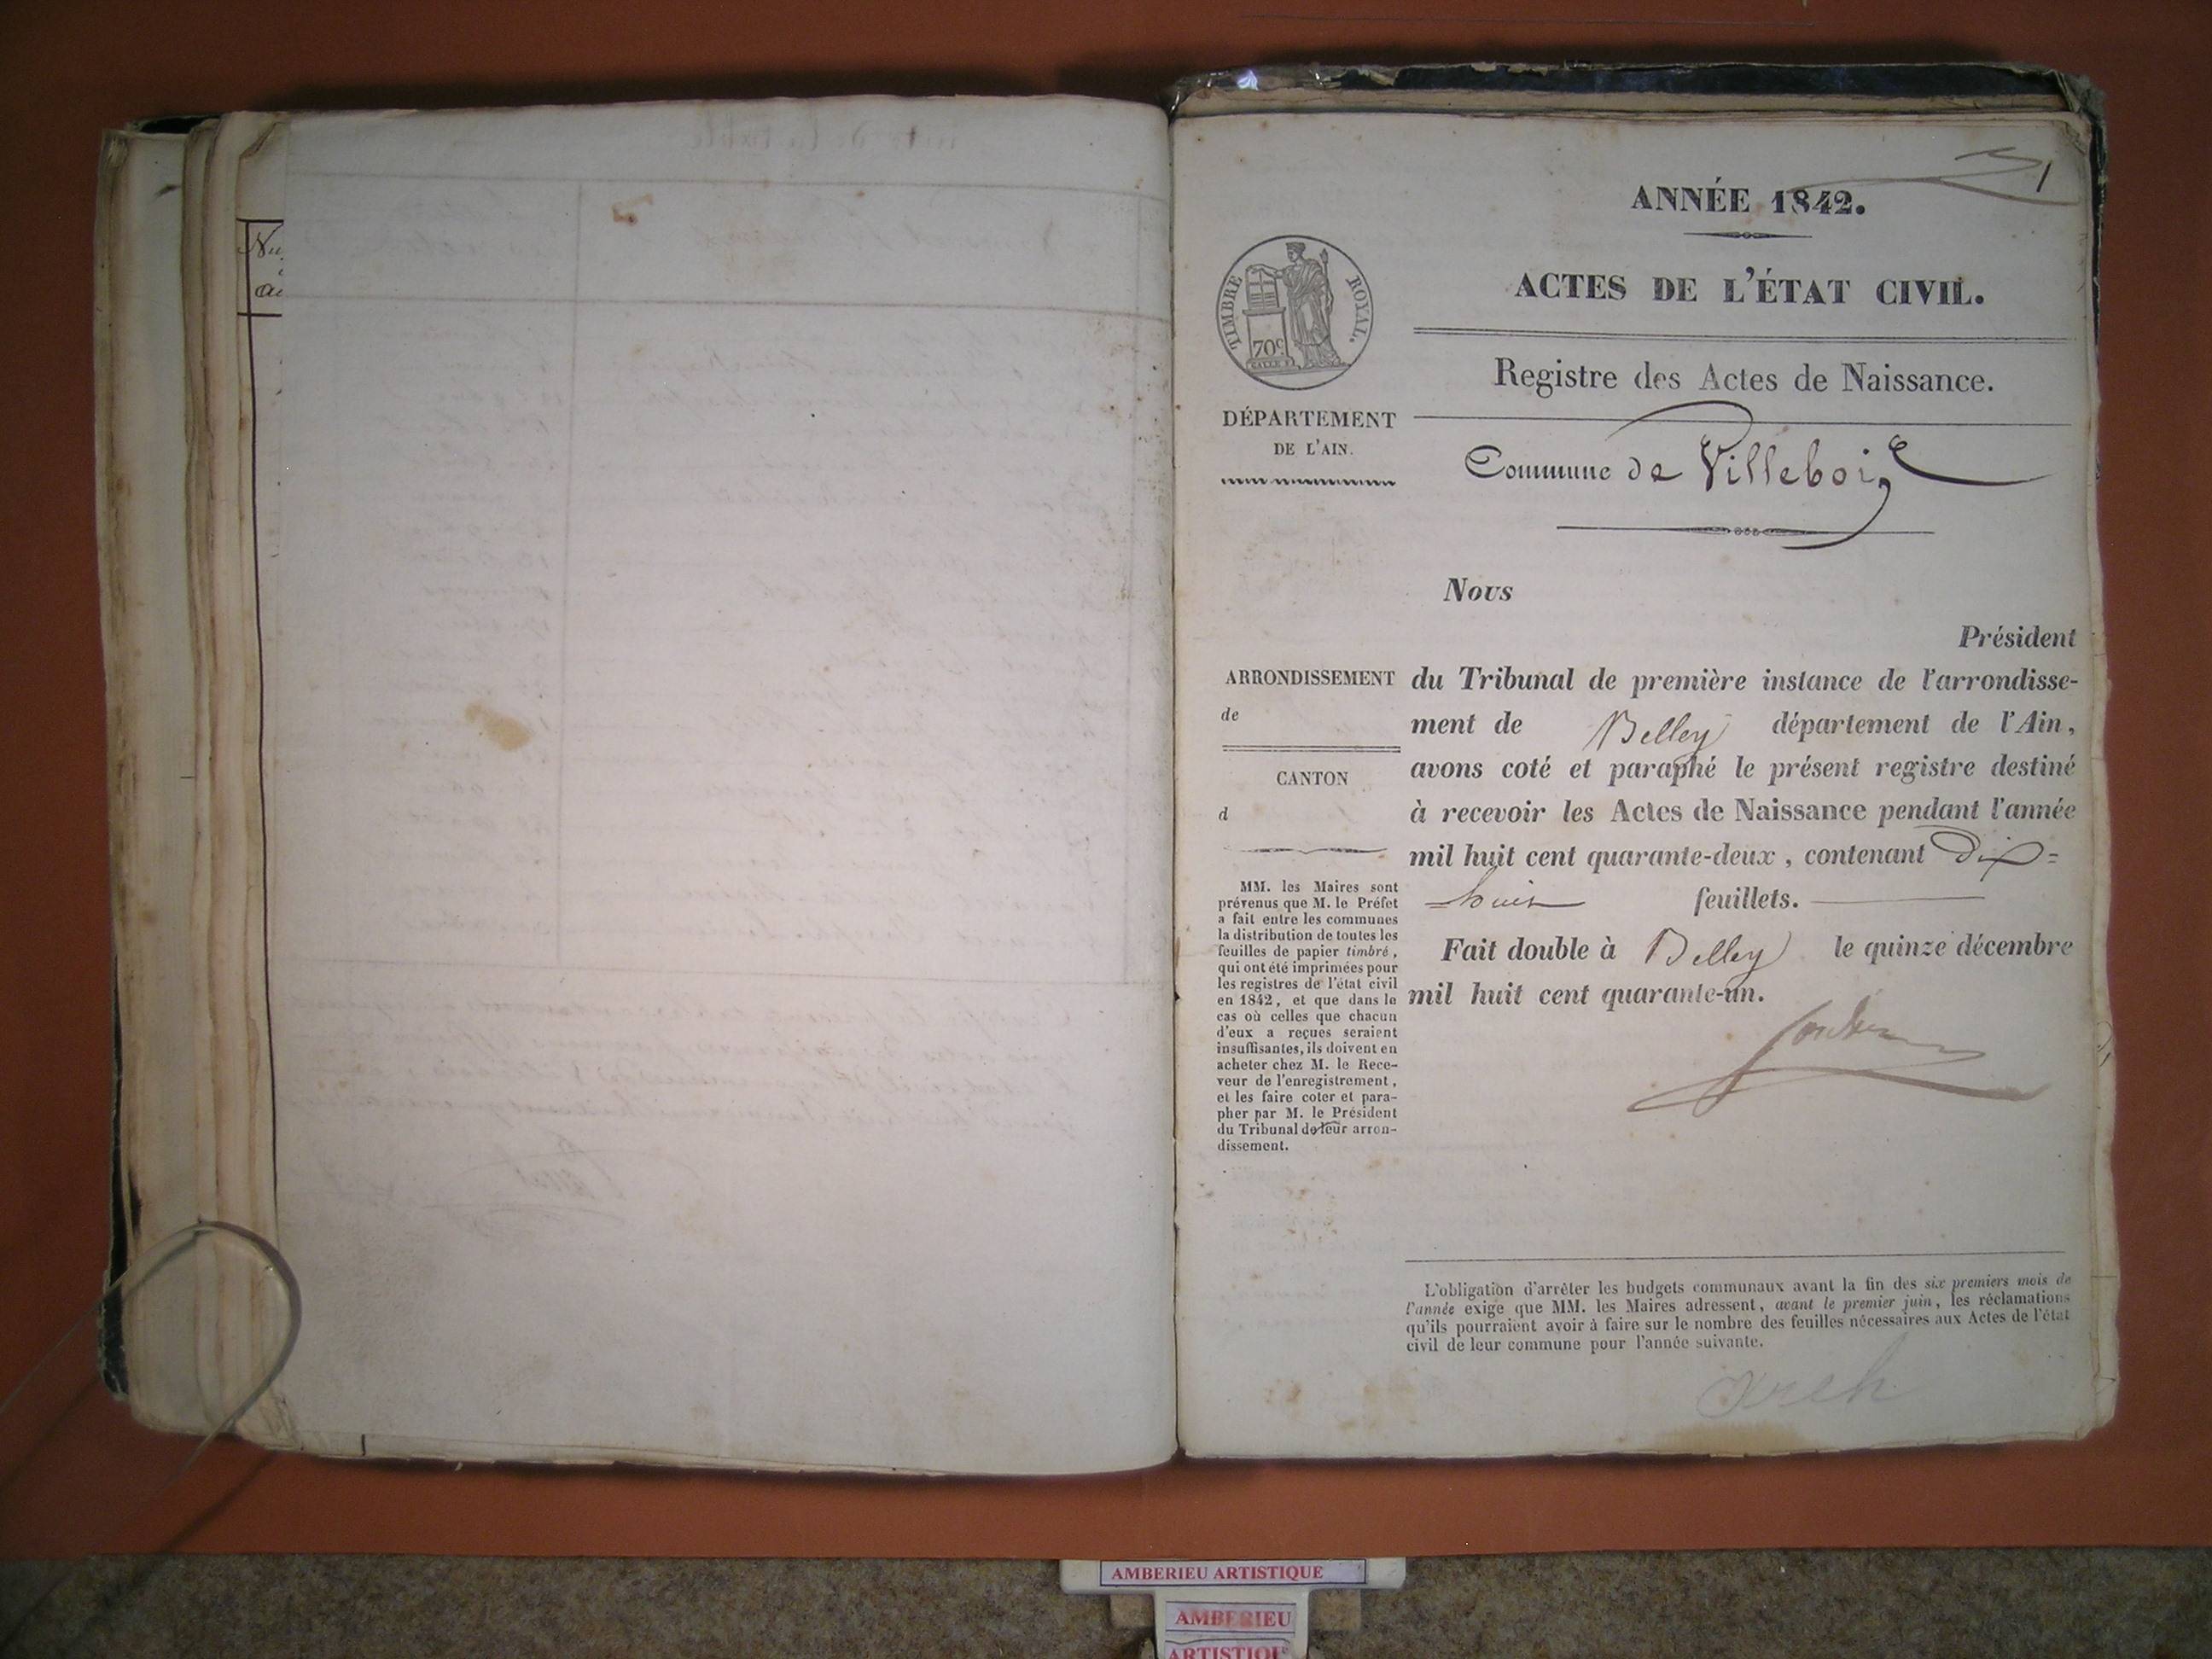 Nu
au
1
ANNÉE 1842.
ACTES DE L'ÉTAT CIVIL.
Registre des Actes de Naissance.
Commune de Villebois
TIMBRE ROYAL.
70c
DÉPARTEMENT
DE L'AIN.
ARRONDISSEMENT
de
CANTON
d
MM. les Maires sont
prévenus que M. le Préfet
a fait entre les communes
la distribution de toutes les
feuilles de papier timbré,
qui ont été imprimées pour
les registres de l'état civil
en 1842, et que dans le
cas où celles que chacun
d'eux a reçues seraient
insuffisantes, ils doivent en
acheter chez M. le Rece-
veur de l'enregistrement,
et les faire coter et para-
pher par M. le Président
du Tribunal de leur arron-
dissement.
Nous
Président
du Tribunal de première instance de l'arrondisse-
ment de Belley département de l'Ain,
avons coté et paraphé le présent registre destiné
à recevoir les Actes de Naissance pendant l'année
mil huit cent quarante-deux, contenant Dix=
=huit feuillets.
Fait double à Belley le quinze décembre
mil huit cent quarante-un.
L'obligation d'arrêter les budgets communaux avant la fin des six premiers mois de
l'année exige que MM. les Maires adressent, avant le premier juin, les réclamations
qu'ils pourraient avoir à faire sur le nombre des feuilles nécessaires aux Actes de l'état
civil de leur commune pour l'année suivante.
AMBERIEU ARTISTIQUE
AMBERIEU
ARTISTIQUE